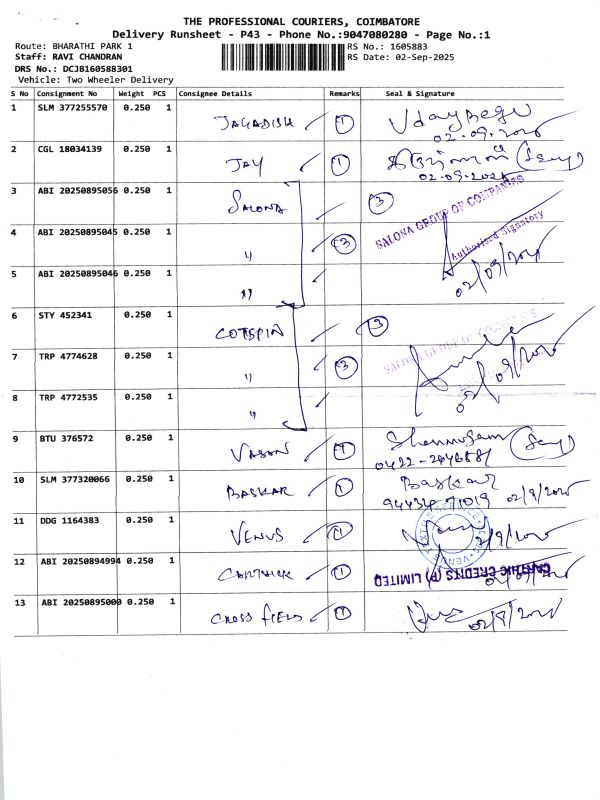 THE PROFESSIONAL COURIERS, COIMBATORE
Delivery Runsheet - P43 - Phone No.:9047080280 - Page No.:1
Route: BHARATHI PARK 1
RS No.: 1605883
Staff: RAVI CHANDRAN
RS Date: 02-Sep-2025
DRS No.: DCJB160588301
Vehicle: Two Wheeler Delivery
S No Consignment No Weight PCS Consignee Details Remarks Seal & Signature
1 SLM 377255570 0.250 1 JAGADISH 1
02.09.2025
2 CGL 18034139 0.250 1 JAY 1
02.09.2025
3 ABI 20250895056 0.250 1 SALONA 3 SALONA GROUP OF COMPANIES
4 ABI 20250895045 0.250 1 " 3 Authorised Signatory
5 ABI 20250895046 0.250 1 " 02/09/2025
6 STY 452341 0.250 1 COTSPIN 3 SALONA GROUP OF COMPANIES
7 TRP 4774628 0.250 1 " 3
8 TRP 4772535 0.250 1 " 02/09/2025
9 BTU 376572 0.250 1 VASAN 1
10 SLM 377320066 0.250 1 BASKAR 1 Baskar
02/9/2025
11 DDG 1164383 0.250 1 VENUS 1 2/9/2025
12 ABI 20250894994 0.250 1 CARTHICK 1 CARTHIC CREDITS (P) LIMITED
13 ABI 20250895000 0.250 1 CROSS FIELD 1 02/9/2025